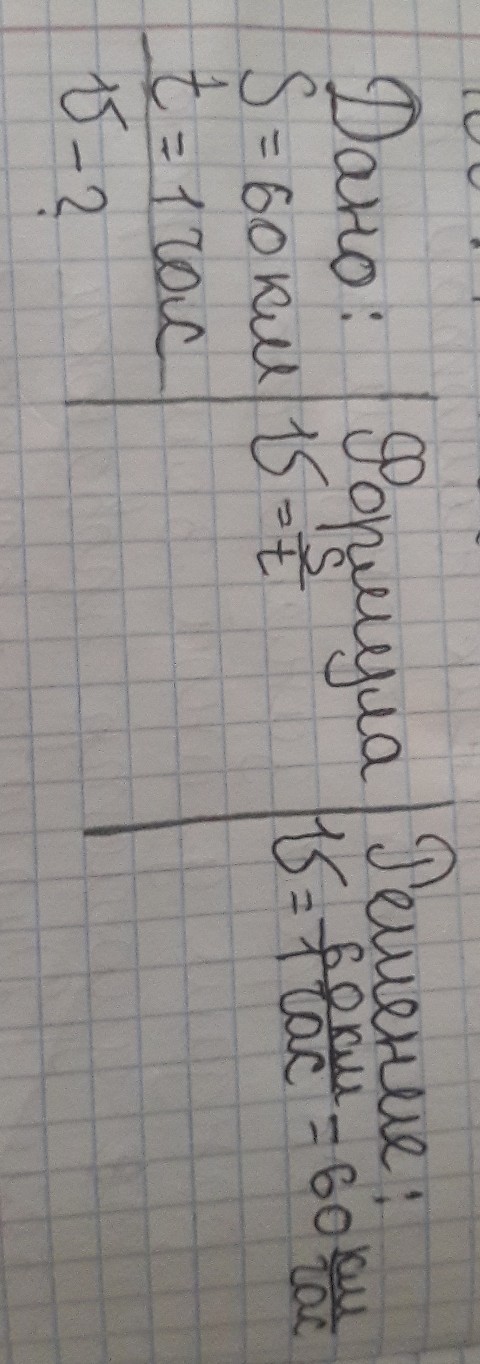 Дано:
S = 60 км
t = 1 час
v - ?
Формула
v = S/t
Решение:
v = 60 км/1 час = 60 км/час